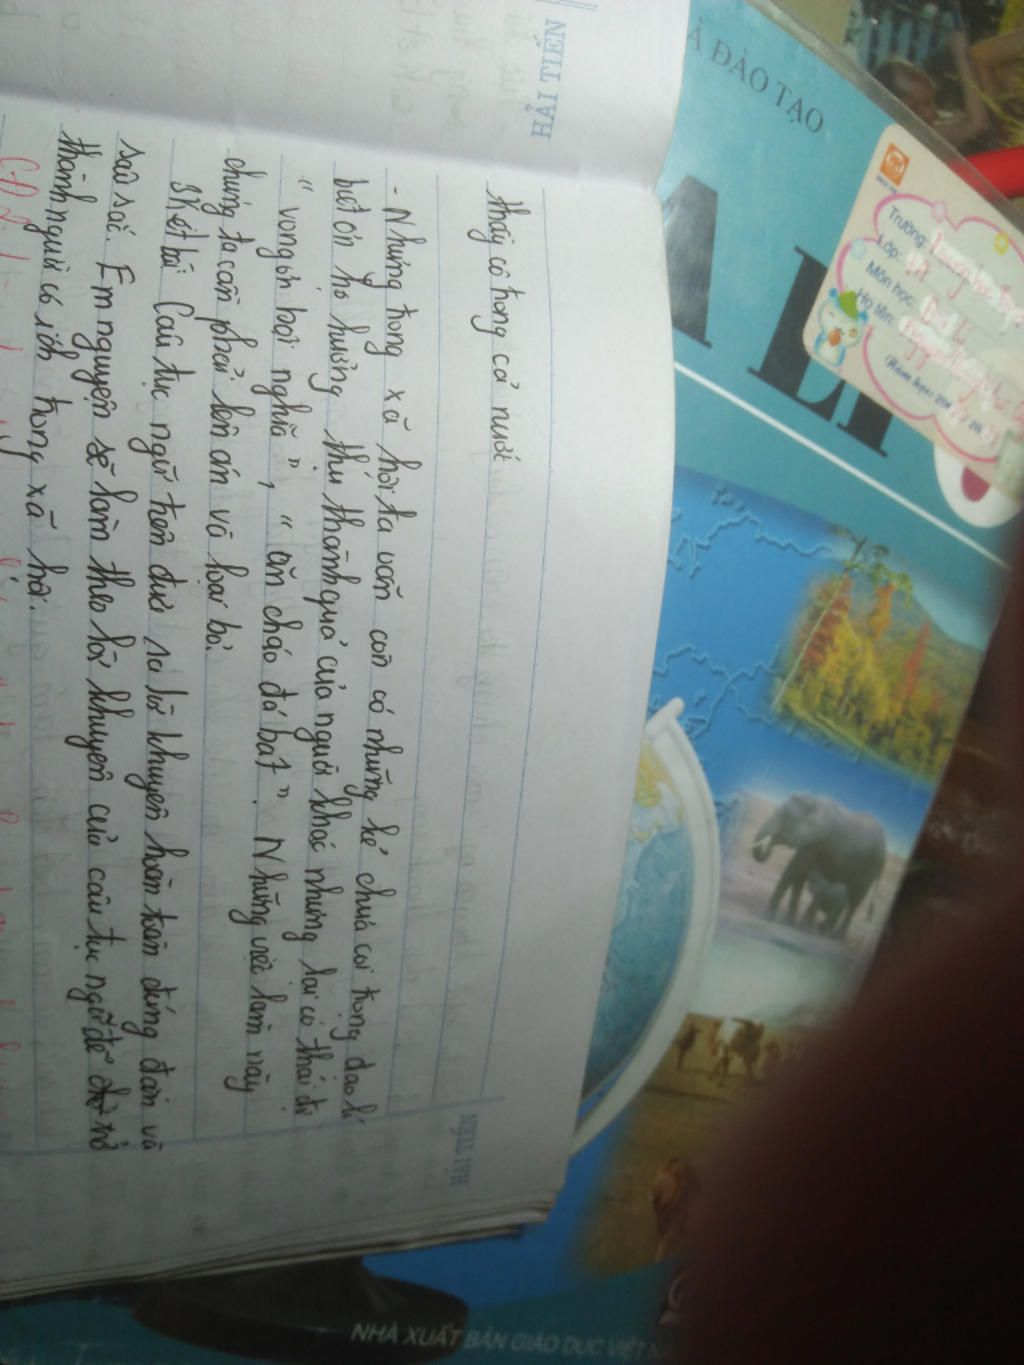 HẢI TIẾN
thầy cô trong cả nước
- Nhưng trong xã hội ta vẫn còn có những kẻ chưa coi trọng đạo lí
biết ơn họ hưởng thụ thành quả của người khác nhưng lại có thái độ
" vong ơn bội nghĩa ", " ăn cháo đá bát". Những việc làm này
chúng ta cần phải lên án và loại bỏ.
3 Kết bài Câu tục ngữ trên đưa ra lời khuyên hoàn toàn đúng đắn và
sâu sắc. Em nguyện sẽ làm theo lời khuyên của câu tục ngữ để trở
thành người có ích trong xã hội.
HẢI TIẾN
À ĐÀO TẠO
A LÍ
Trường:
Lớp: 7A
Môn học: Địa lí
Họ tên:
(Năm học: 20
NHÀ XUẤT BẢN GIÁO DỤC VIỆT NA